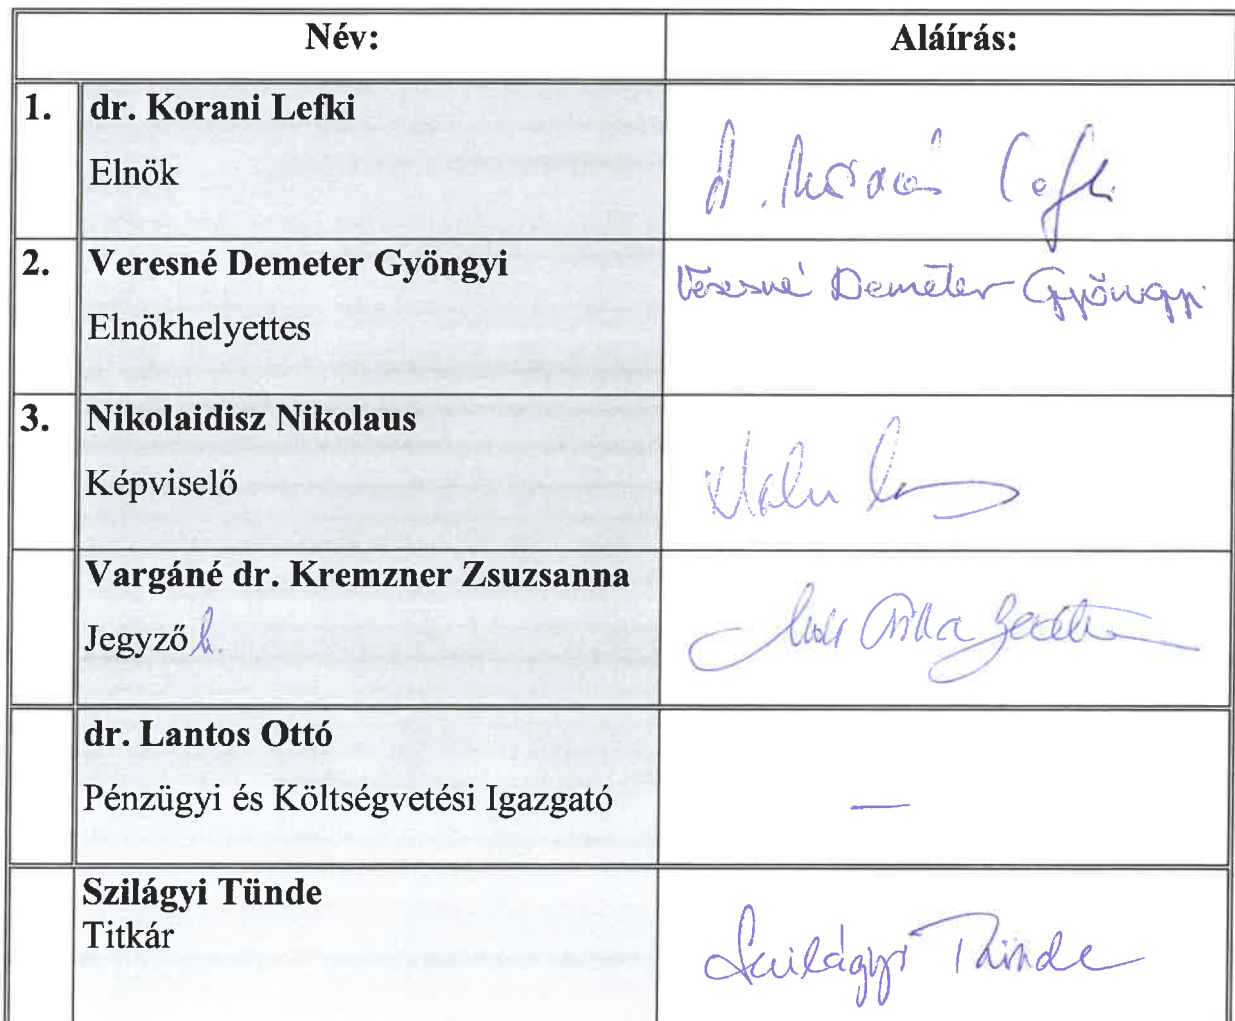 Név: Aláírás:
1. dr. Korani Lefki
Elnök
2. Veresné Demeter Gyöngyi Veresné Demeter Gyöngyi
Elnökhelyettes
3. Nikolaidisz Nikolaus
Képviselő
Vargáné dr. Kremzner Zsuzsanna
Jegyző h.
dr. Lantos Ottó
Pénzügyi és Költségvetési Igazgató —
Szilágyi Tünde
Titkár Szilágyi Tünde